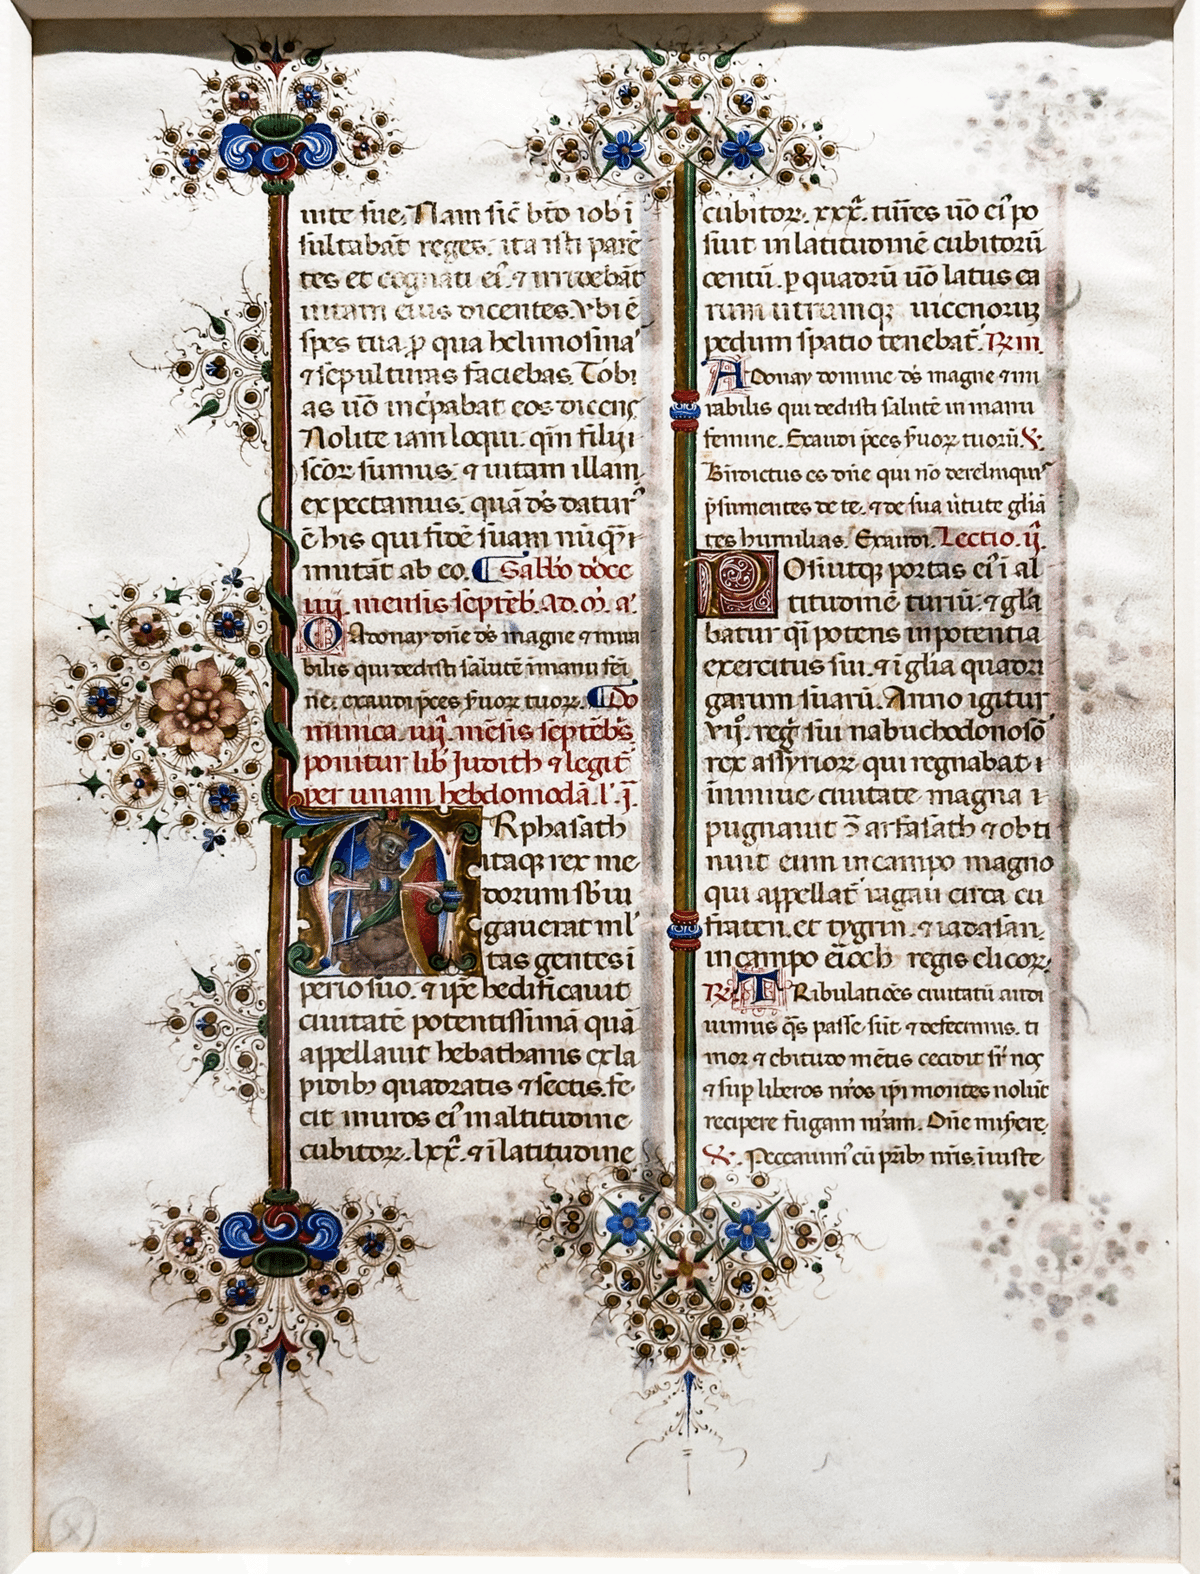 uite sue. Nam sic̄ bt̄o iob ī
sultabāt reges. ita isti parē
tes et cognati eiꝰ. ⁊ irridebāt
uitam eius dicentes. Vbi ē
spes tua ꝓ qua helimosinaˢ
⁊ sepulturas faciebas. Tobi
as uō īncᵉpabat eos dicens
Nolite iam loqui. qm̄ filij
sc̄oꝝ sumus. ⁊ uitam illam
expectamus. quā dˢ daturꝰ
ē his qui fidē suam nūq̄
mutāt ab eo. ¶ Sabb̄o
mensis septēb. ad. m̄. a.
O Adonay dn̄e dˢ magne ⁊ mira
bilis qui dedisti salutē ī manu fēi
ne. exaudi p̄ces s̉uoꝝ tuoꝝ. ¶ Do
minica. iiij. mēsis septēbˢ
ponitur lib̉ Judith ⁊ legit̉
per unam hebdomodā. l'. j̄.
A Rphasath
itaqꝫ rex me
dorum sb̄iu
gauerat ml̄
tas gentes ī
perio suo. ⁊ ip̄e hedificauit
ciuitatē potentissimā quā
appellauit hebathanis ex la
pidibꝫ quadratis ⁊ sectis. fe
cit muros eiꝰ in altitudine
cubitoꝝ. lxx̄. ⁊ ī latitudine
cubitoꝝ. xxx̄. turres uō eiꝰ po
suit in latitudinē cubitorū
centū. ꝑ quadrū uō latus ea
rum utrumqꝫ uicenoriꝫ
pedum spatio tenebat̉. R̷m.
A Donay domine dˢ magne ⁊ mi
rabilis qui dedisti salutē in manu
femine. Exaudi p̄ces s̉uoꝝ tuorū. ℣.
Bn̄dictus es dn̄e qui nō derelinquisˢ
p̄sumentes de te. ⁊ de sua ūtute gl̄iā
tes humilias. Exaudi. Lectio. ij.
P Osuitqꝫ portas eiꝰ ī al
titudinē turiū. ⁊ gl̄a
batur q̄i potens in potentia
exercitus sui. ⁊ ī gl̄ia quadri
garum suarū. Anno igitur
regˢ sui nabuchodonosō
rex assyrioꝝ qui regnabat ī
niniue ciuitate magna ī
pugnauit ꝯ̄ arfasath ⁊ obti
nuit eum in campo magno
qui appellat̉ ragau circa eu
fraten. et tygrin. ⁊ iadasan.
in campo ēioch regis elicoꝝ.
R̷. T Ribulatiōes ciuitatū audi
uimus q̄s passe sūt. ⁊ defecimus. ti
mor ⁊ ebitudo mētis cecidit sr̄ nos
⁊ suꝑ liberos nr̄os ip̄i montes nolūt
recipere fugam nr̄am. Dn̄e mis̄ere.
℣. Peccauimꝰ cū pr̄ibꝫ nr̄is. iniuste